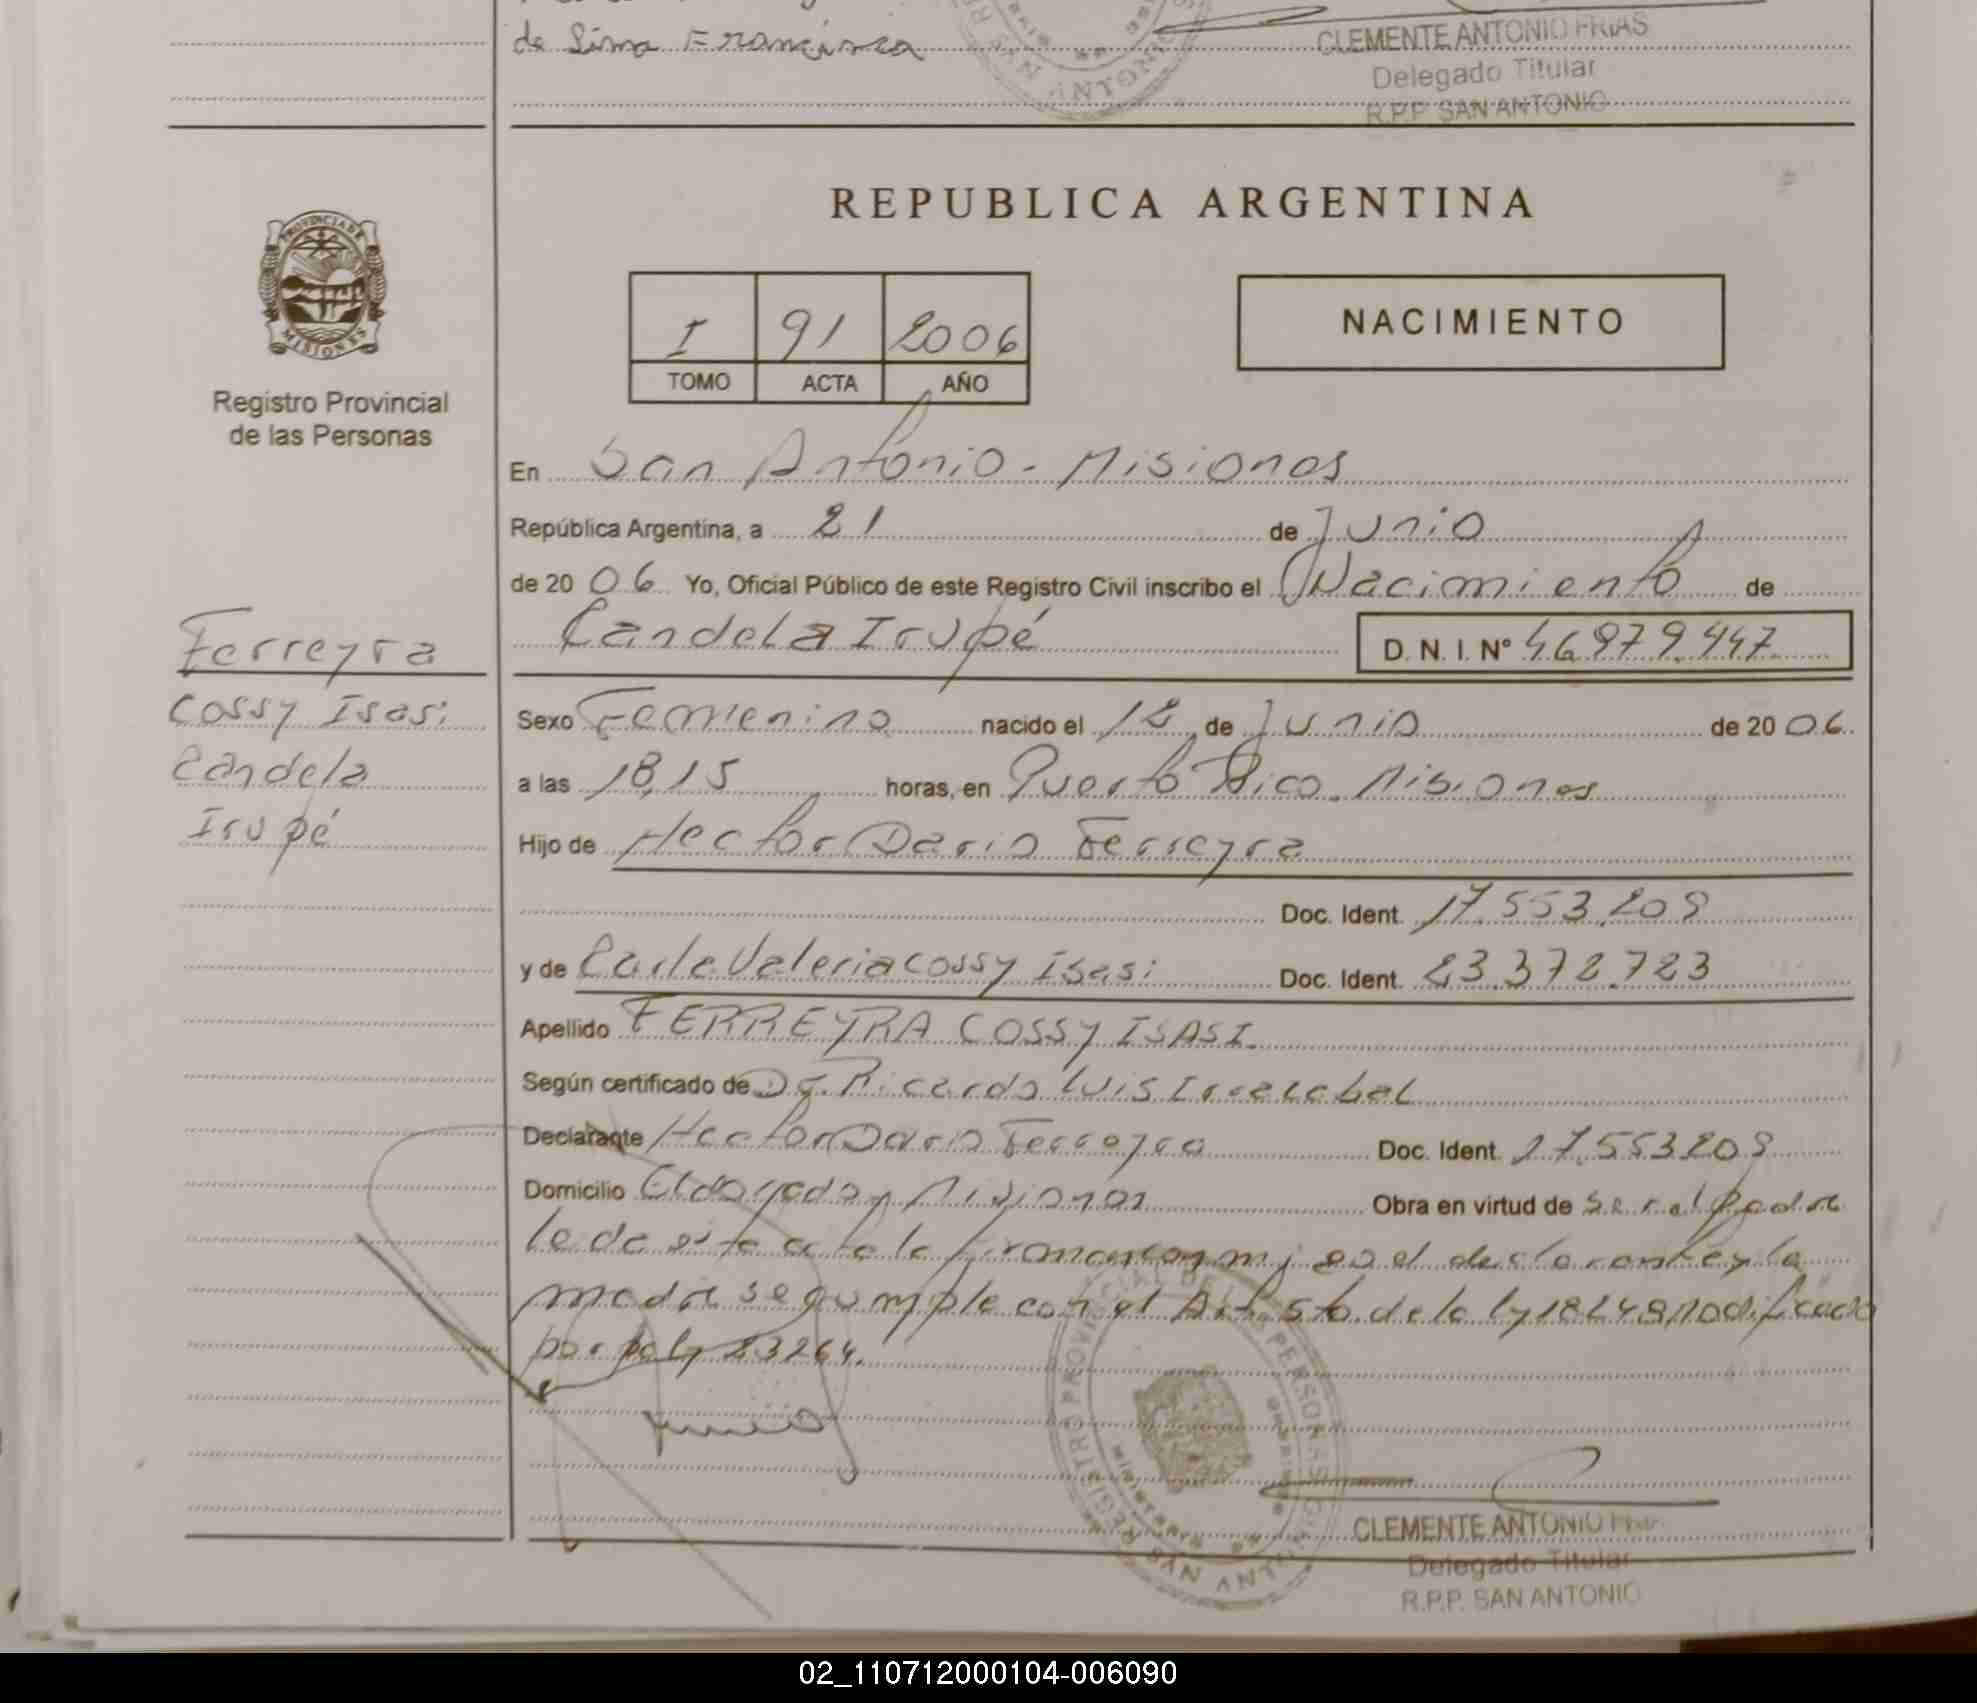 de Lima Francisca
CLEMENTE ANTONIO FRIAS
Delegado Titular
R.P.P. SAN ANTONIO
REPUBLICA ARGENTINA
PROVINCIA DE
MISIONES
Registro Provincial
de las Personas
I 91 2006
TOMO ACTA AÑO
NACIMIENTO
En San Antonio - Misiones
República Argentina, a 21 de Junio
de 20 06 Yo, Oficial Público de este Registro Civil inscribo el Nacimiento de
Candela Irupé D. N. I. Nº 46979.447
Ferreyra
Cossy Isasi
Candela
Irupé
Sexo Femenino nacido el 12 de Junio de 20 06
a las 18,15 horas, en Puerto Rico. Misiones
Hijo de Hector Dario Ferreyra
Doc. Ident. 17.553.209
y de Carla Valeria Cossy Isasi Doc. Ident. 23.372.723
Apellido FERREYRA COSSY ISASI.
Según certificado de Dr. Ricardo Luis
Declarante Hector Dario Ferreyra Doc. Ident. 17.553209
Domicilio Eldorado, Misiones Obra en virtud de Ser el Padre
leda esta acta la firman conmigo el declarante y la
madre se cumple con el Art. 5to. de la ly 18248 modificado
por la ly 23264.
REGISTRO PROVINCIAL DE LAS PERSONAS
SAN ANTONIO
CLEMENTE ANTONIO FRIAS
Delegado Titular
R.P.P. SAN ANTONIO
02_110712000104-006090